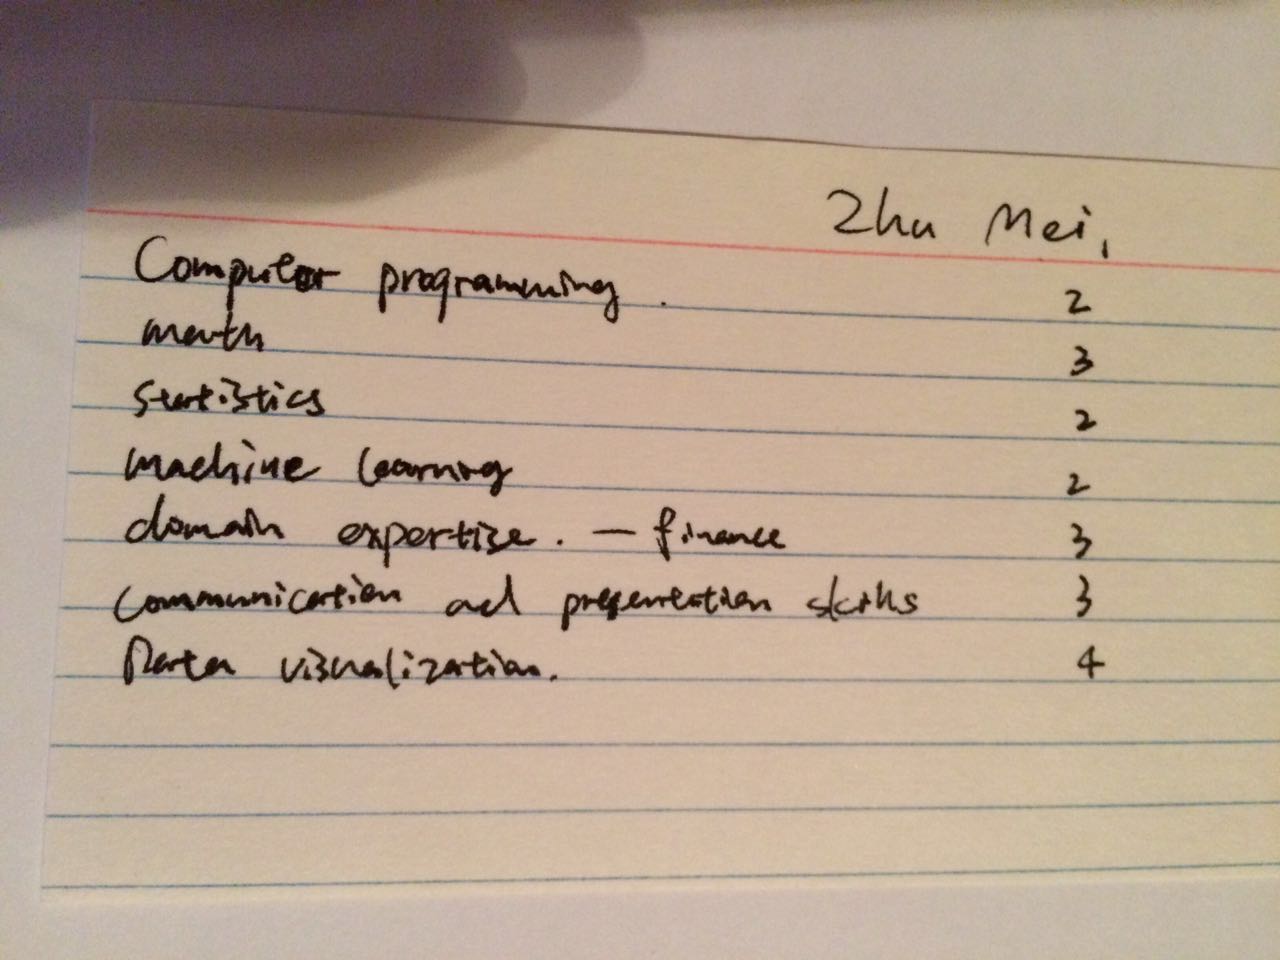 Zhu Mei,
Computer programming. 2
math 3
Statistics 2
machine learning 2
domain expertise. — finance 3
Communication ad presentation skills 3
Data visualization. 4